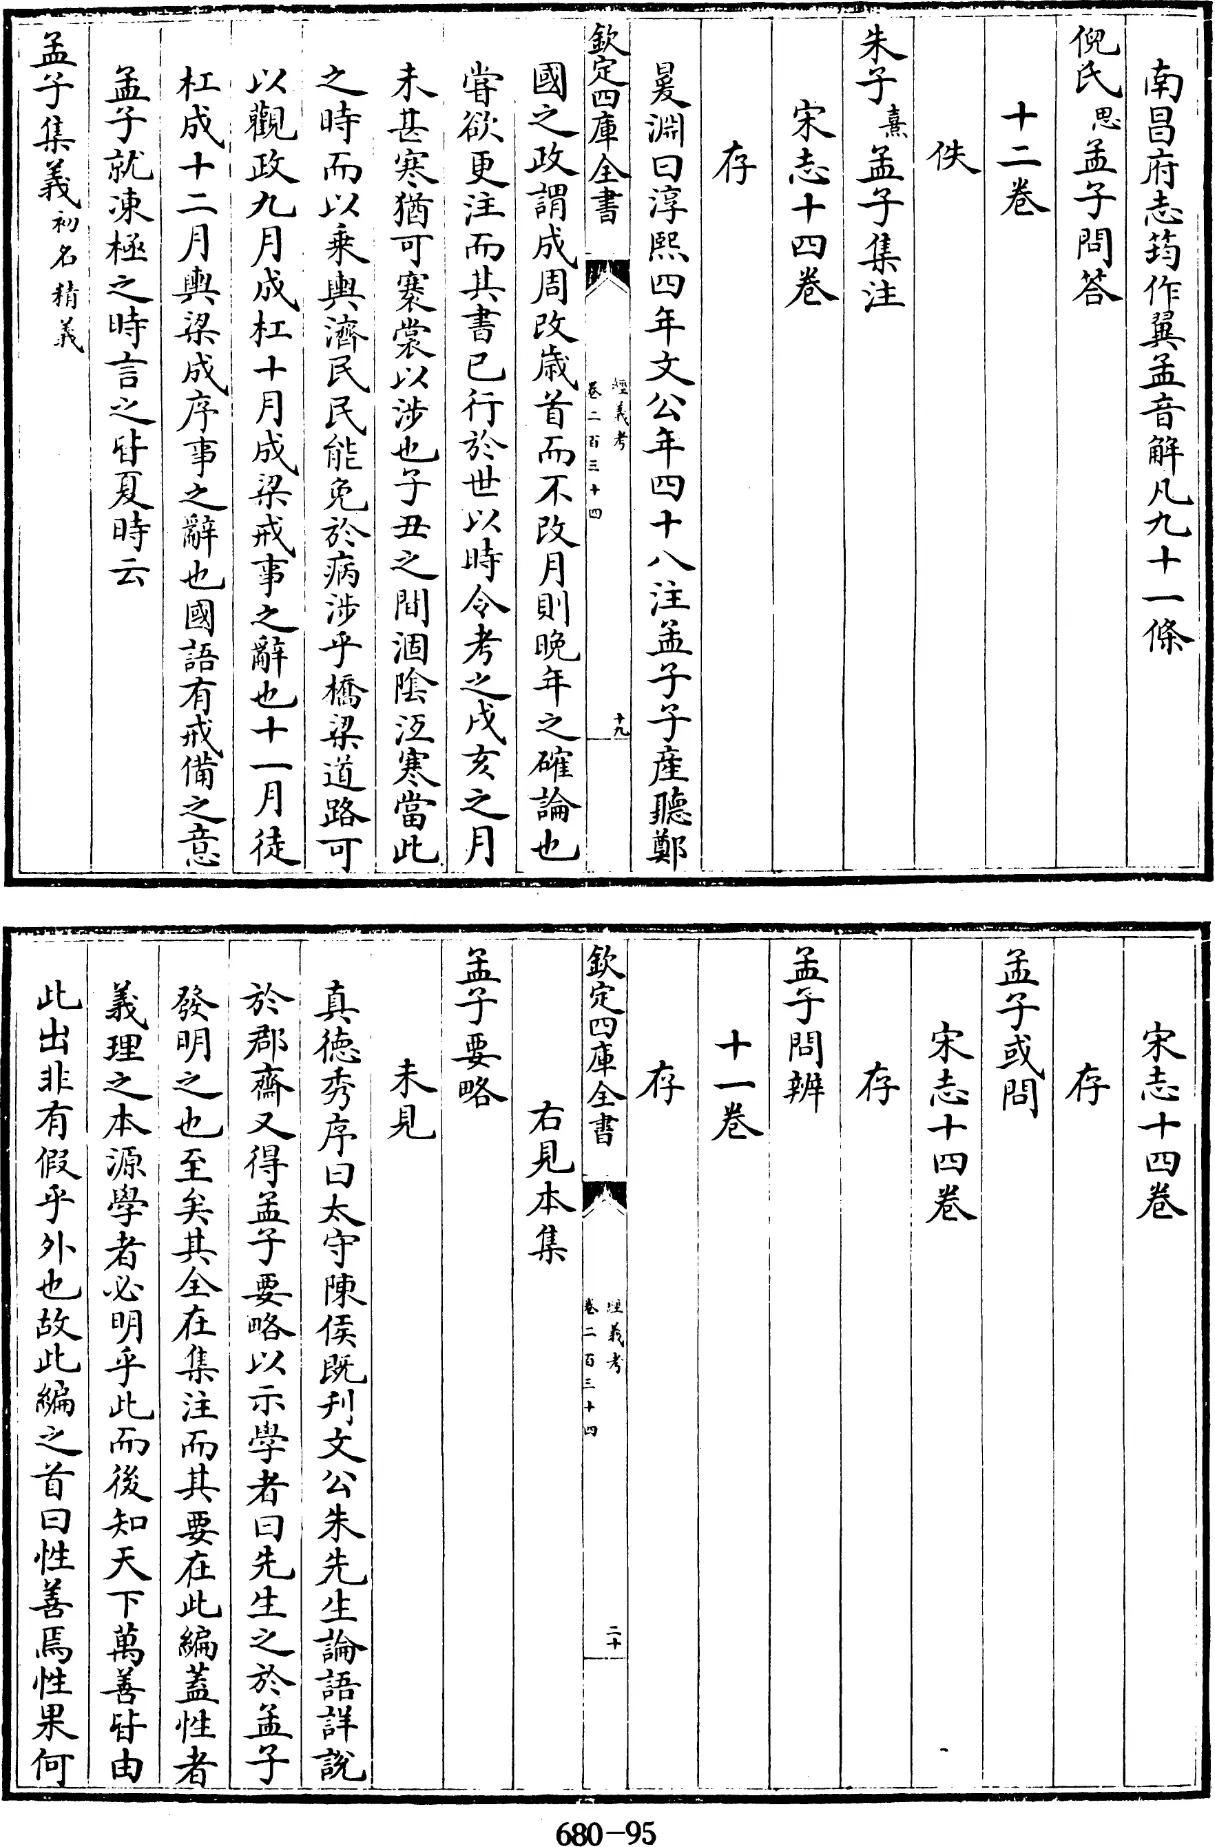 南昌府志筠作翼孟音解凡九十一條
倪氏思孟子問答
十二卷
佚
朱子熹孟子集注
宋志十四卷
存
㬊淵曰淳熙四年文公年四十八注孟子子產聽鄭
欽定四庫全書
經義考
卷二百三十四
十九
國之政謂成周改歲首而不改月則晩年之確論也
嘗欲更注而其書已行於世以時令考之戌亥之月
未甚寒猶可褰裳以涉也子丑之間涸陰沍寒當此
之時而以乘輿濟民民能免於病涉乎橋梁道路可
以觀政九月成杠十月成梁戒事之辭也十一月徒
杠成十二月輿梁成序事之辭也國語有戒備之意
孟子就凍極之時言之皆夏時云
孟子集義初名精義
宋志十四卷
存
孟子或問
宋志十四卷
存
孟子問辨
十一卷
存
欽定四庫全書
經義考
卷二百三十四
二十
右見本集
孟子要略
未見
真德秀序曰太守陳侯既刋文公朱先生論語詳説
於郡齋又得孟子要略以示學者曰先生之於孟子
發明之也至矣其全在集注而其要在此編蓋性者
義理之本源學者必明乎此而後知天下萬善皆由
此出非有假乎外也故此編之首曰性善焉性果何
680-95